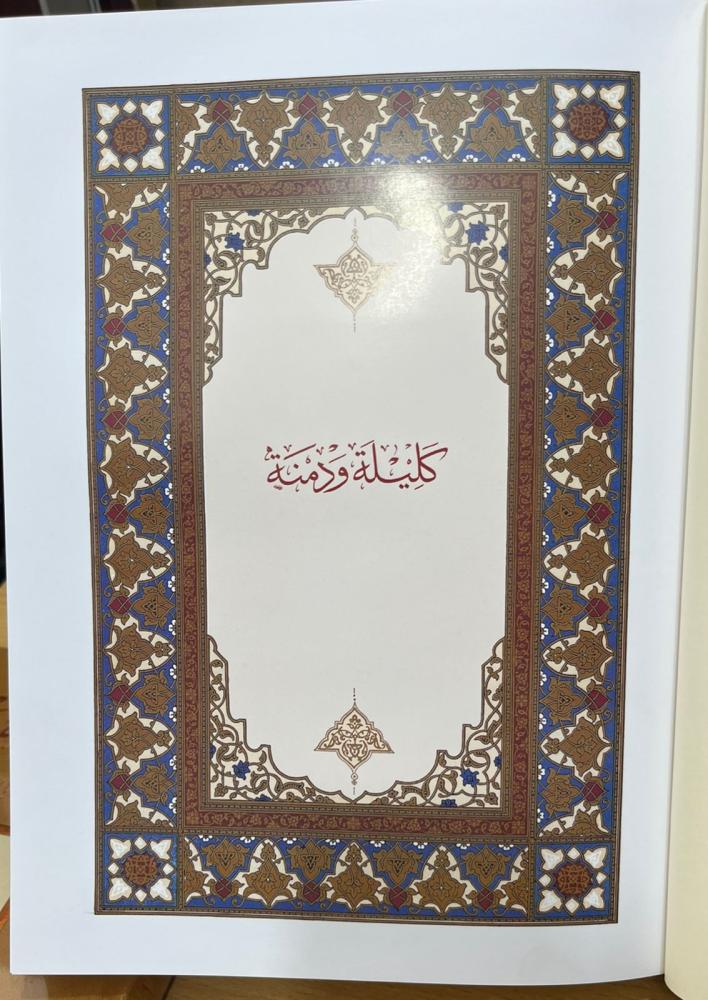 كَلِيْلَة وَدِمْنَة